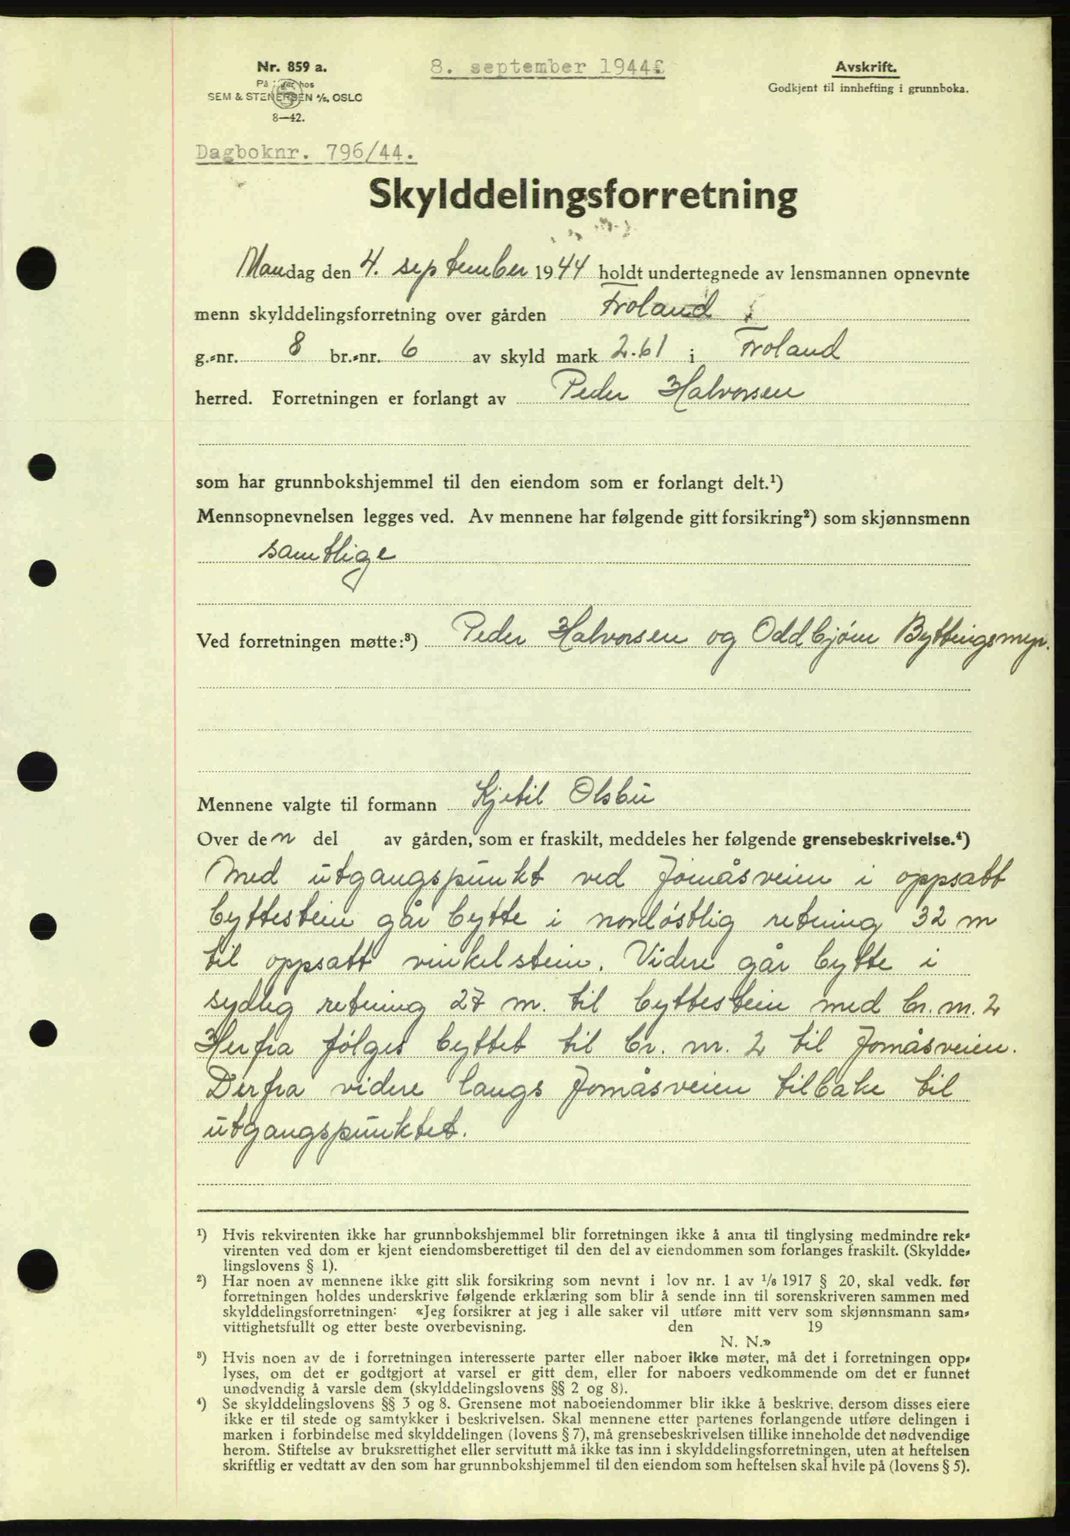 Nr. 859 a.
8. september 1944
Avskrift.
Godkjent til innhefting i grunnboka.
SEM & STENERSEN A/S, OSLO
8—42.
Dagboknr. 796/44.
Skylddelingsforretning
Mandag den 4. september 1944 holdt undertegnede av lensmannen opnevnte
menn skylddelingsforretning over gården Froland
g.-nr. 8 br.-nr. 6 av skyld mark 2.61 i Froland
herred. Forretningen er forlangt av Peder Halvorsen
som har grunnbokshjemmel til den eiendom som er forlangt delt.¹)
Mennsopnevnelsen legges ved. Av mennene har følgende gitt forsikring²) som skjønnsmenn
samtlige
Ved forretningen møtte:³) Peder Halvorsen og Oddbjørn Byttingsmyr.
Mennene valgte til formann Kjetil Olsbu
Over den del av gården, som er fraskilt, meddeles her følgende grensebeskrivelse.⁴)
Med utgangspunkt ved Jomåsveien i oppsatt
byttestein går bytte i nordøstlig retning 32 m
til oppsatt vinkelstein. Videre går bytte i
sydlig retning 27 m. til byttestein med br. nr. 2
Herfra følges byttet til br. nr. 2 til Jomåsveien.
Derfra videre langs Jomåsveien tilbake til
utgangspunktet.
¹) Hvis rekvirenten ikke har grunnbokshjemmel blir forretningen ikke å anta til tinglysing medmindre rek-
virenten ved dom er kjent eiendomsberettiget til den del av eiendommen som forlanges fraskilt. (Skyldde-
lingslovens § 1).
²) Har noen av mennene ikke gitt slik forsikring som nevnt i lov nr. 1 av 1/6 1917 § 20, skal vedk. før
forretningen holdes underskrive følgende erklæring som blir å sende inn til sorenskriveren sammen med
skylddelingsforretningen: «Jeg forsikrer at jeg i alle saker vil utføre mitt verv som skjønnsmann sam-
vittighetsfullt og etter beste overbevisning. den 19
N. N.»
³) Hvis noen av de i forretningen interesserte parter eller naboer ikke møter, må det i forretningen opp-
lyses, om det er godtgjort at varsel er gitt dem, eller for naboers vedkommende om det er funnet
unødvendig å varsle dem (skylddelingslovens §§ 2 og 8).
⁴) Se skylddelingslovens §§ 3 og 8. Grensene mot naboeiendommer blir ikke å beskrive, dersom disses eiere
ikke er til stede og samtykker i beskrivelsen. Skal mennene etter partenes forlangende utføre delingen i
marken i forbindelse med skylddelingen (lovens § 7), må grensebeskrivelsen tillike inneholde det nødvendige
herom. Stiftelse av bruksrettighet eller servitutt må ikke tas inn i skylddelingsforretningen, uten at heftelsen
skriftlig er vedtatt av den som har grunnbokshjemmel til den eiendom som heftelsen skal hvile på (lovens § 5).